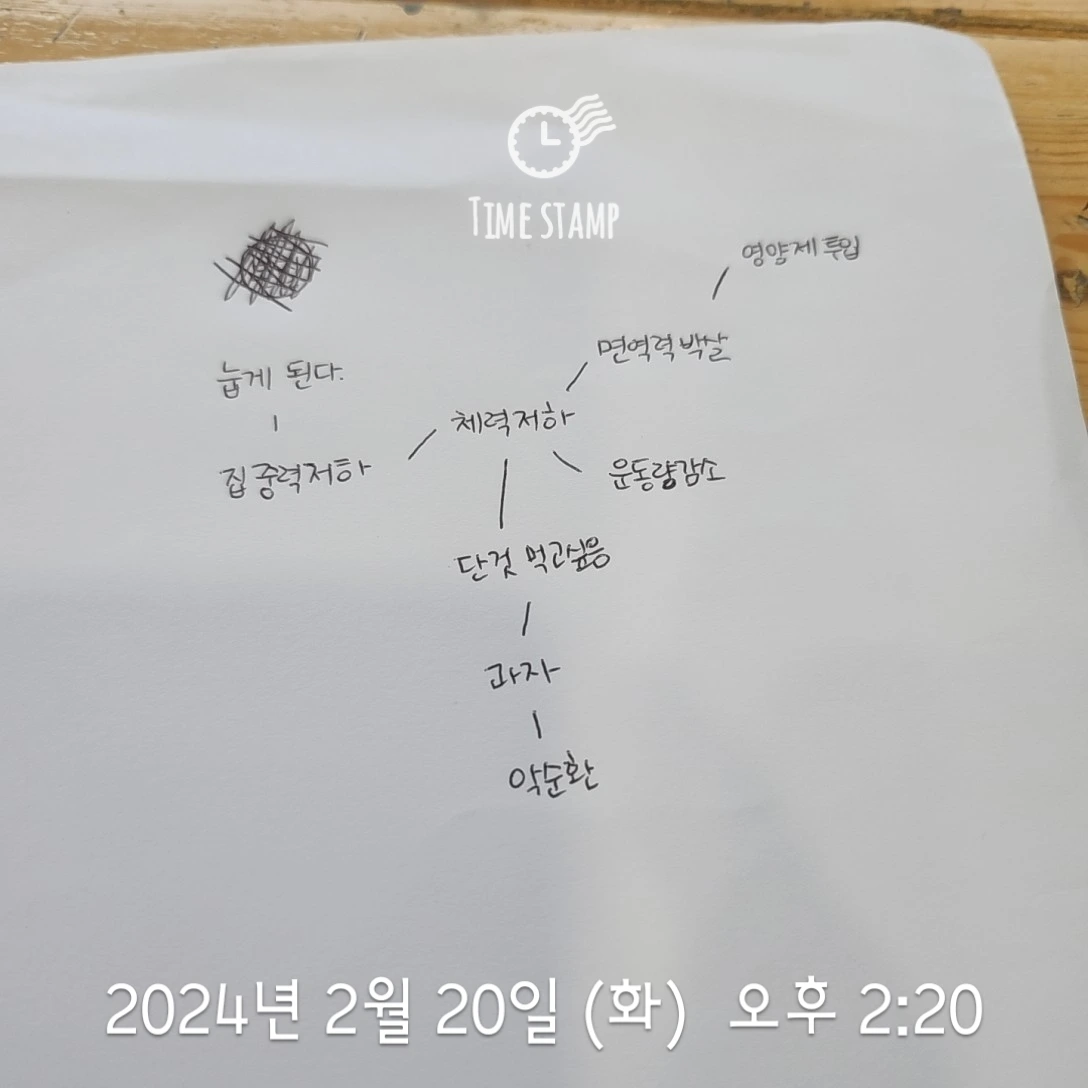 TIME STAMP
영양제 투입
면역력 박살
눕게 된다.
체력저하
집중력저하
운동량감소
단것 먹고싶음
과자
악순환
2024년 2월 20일 (화) 오후 2:20